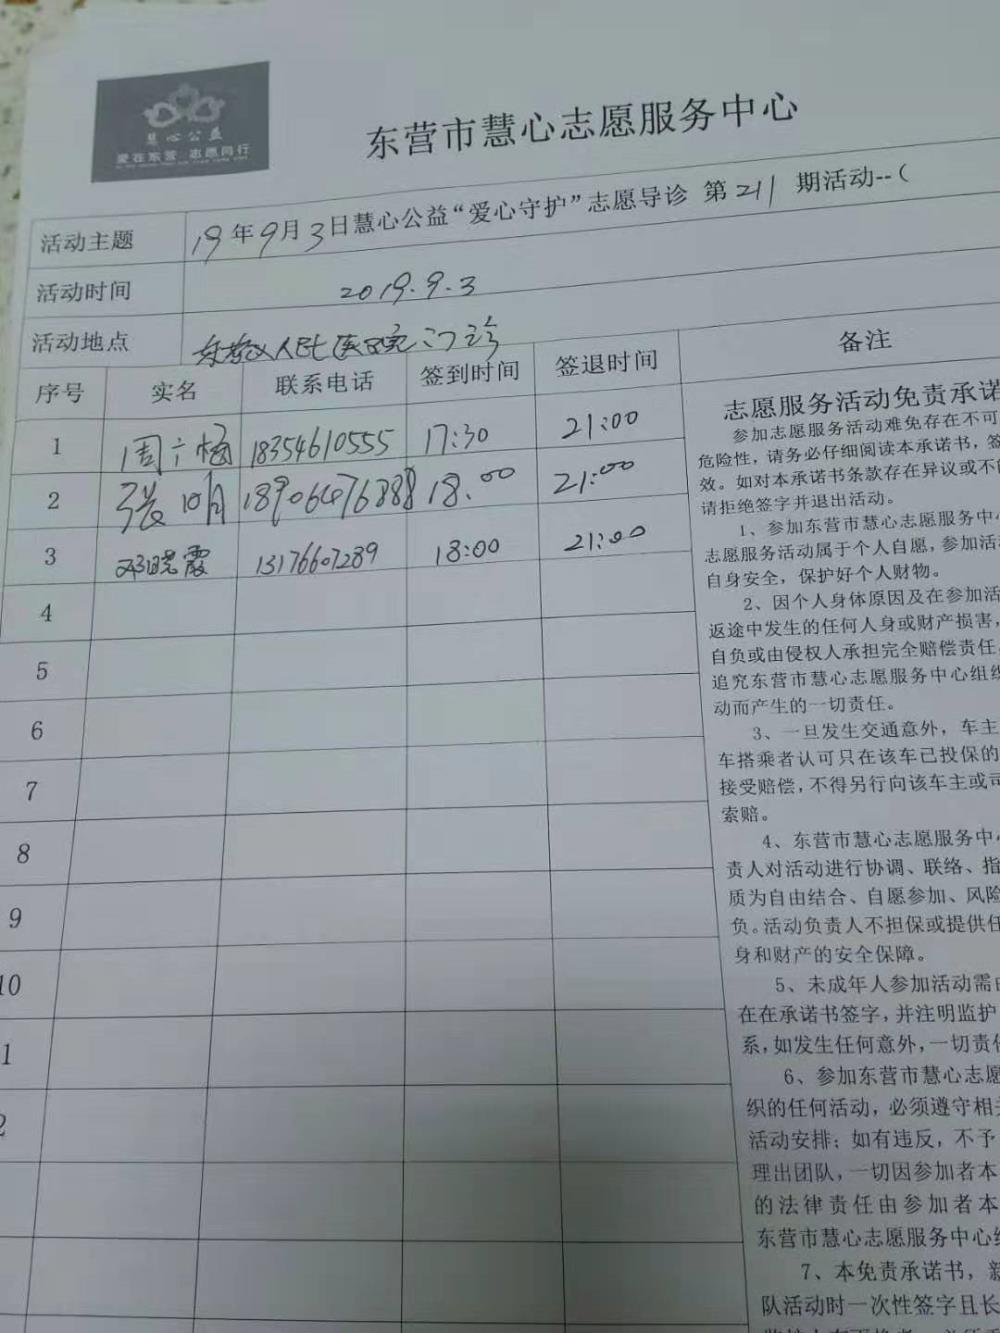 慧心公益
爱在东营 志愿同行
东营市慧心志愿服务中心
活动主题 19年9月3日慧心公益“爱心守护”志愿导诊 第211 期活动--(
活动时间 2019.9.3
活动地点 人民医院门诊
序号 实名 联系电话 签到时间 签退时间 备注
1 周 18354610555 17:30 21:00
2 张明 18906476888 18:00 21:00
3 邓晓霞 13176607289 18:00 21:00
4
5
6
7
8
9
10
1
2
志愿服务活动免责承诺
参加志愿服务活动难免存在不可
危险性，请务必仔细阅读本承诺书，签
效。如对本承诺书条款存在异议或不能
请拒绝签字并退出活动。
1、参加东营市慧心志愿服务中心
志愿服务活动属于个人自愿，参加活动
自身安全，保护好个人财物。
2、因个人身体原因及在参加活
返途中发生的任何人身或财产损害，
自负或由侵权人承担完全赔偿责任。
追究东营市慧心志愿服务中心组织
动而产生的一切责任。
3、一旦发生交通意外，车主
车搭乘者认可只在该车已投保的
接受赔偿，不得另行向该车主或司
索赔。
4、东营市慧心志愿服务中心
责人对活动进行协调、联络、指
质为自由结合、自愿参加、风险
负。活动负责人不担保或提供任
身和财产的安全保障。
5、未成年人参加活动需由
在在承诺书签字，并注明监护
系，如发生任何意外，一切责任
6、参加东营市慧心志愿
织的任何活动，必须遵守相关
活动安排；如有违反，不予
理出团队，一切因参加者本
的法律责任由参加者本
东营市慧心志愿服务中心组
7、本免责承诺书，新
队活动时一次性签字且长